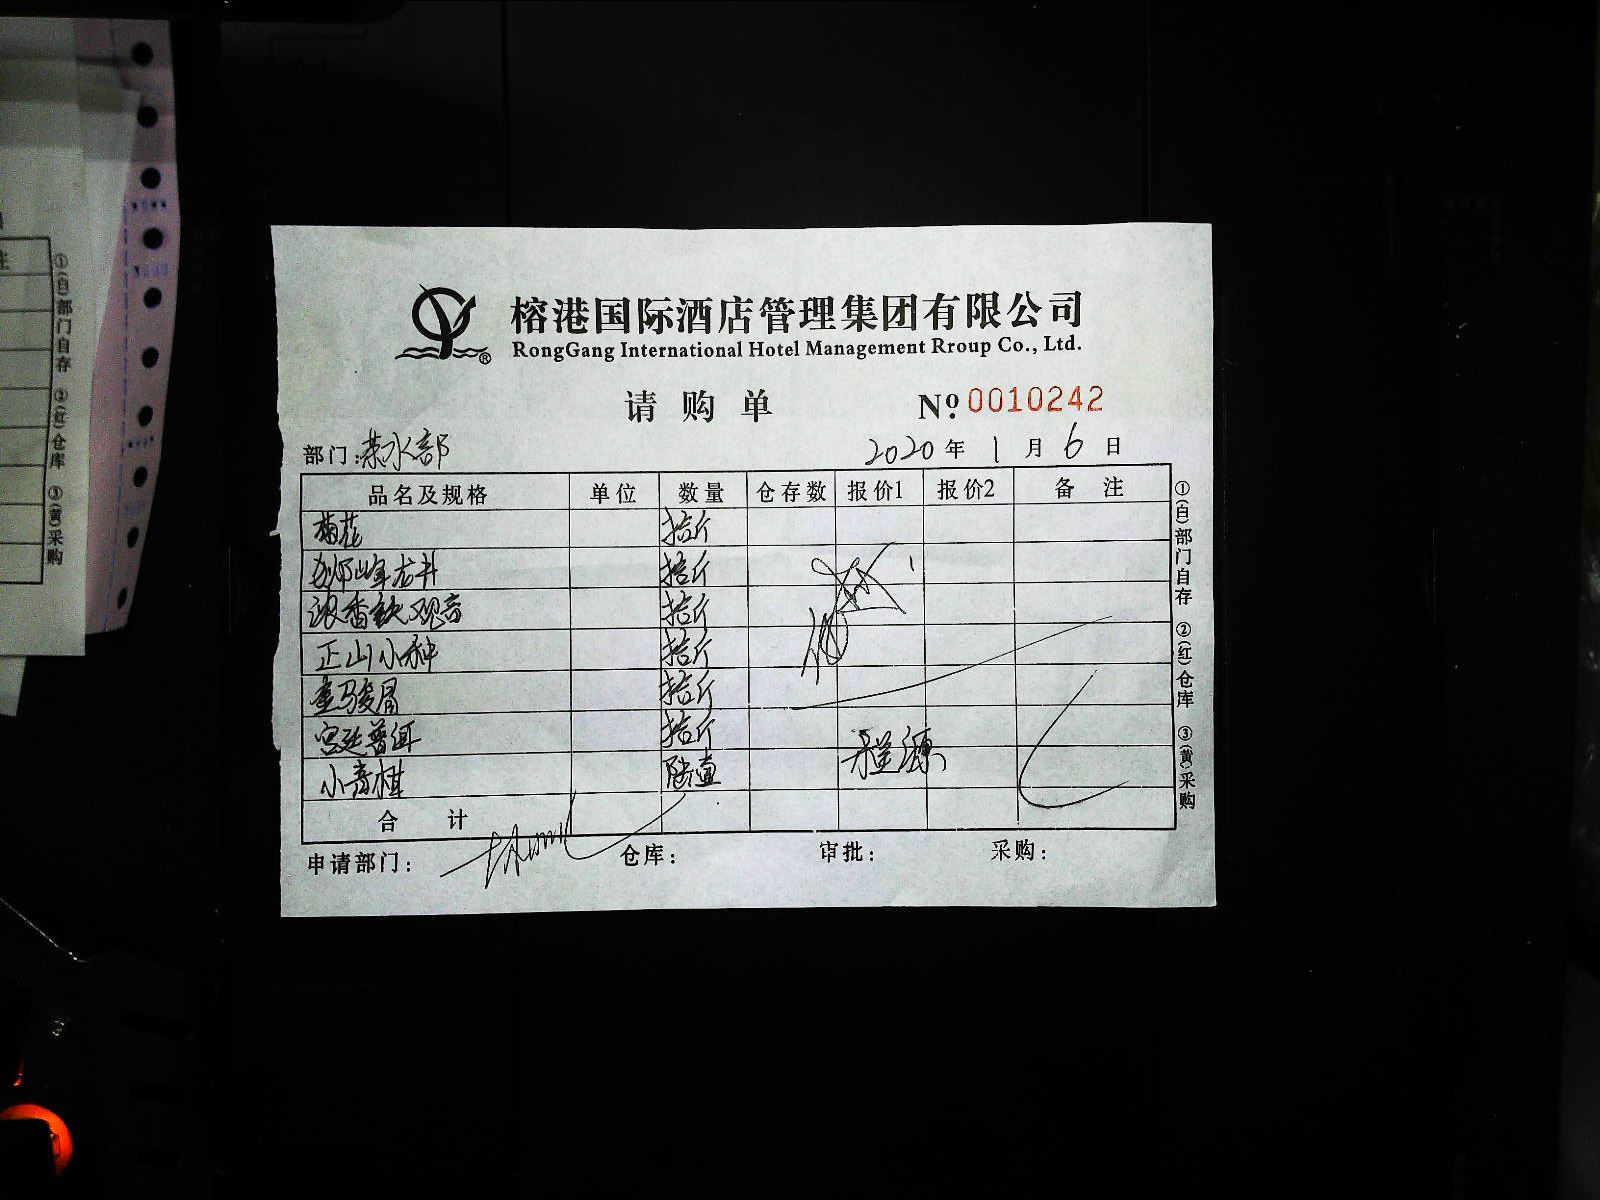 榕港国际酒店管理集团有限公司
RongGang International Hotel Management Rroup Co., Ltd.
请购单 Nº 0010242
部门:茶水部 2020年1月6日
品名及规格 单位 数量 仓存数 报价1 报价2 备注
菊花 拾斤
狮峰龙井 拾斤
浓香铁观音 拾斤
正山小种 拾斤
金骏眉 拾斤
宫廷普洱 拾斤
小青柑 陆
合计
申请部门: 仓库: 审批: 采购:
①(白)部门自存 ②(红)仓库 ③(黄)采购
注
①(白)部门自存 ②(红)仓库 ③(黄)采购